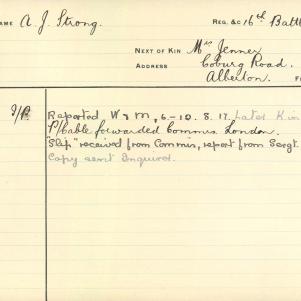 NAME A. J. Strong. REG. &C 16th Batt
NEXT OF KIN Mrs Jenner
ADDRESS Coburg Road.
Alberton.
Reported W & M, 6-10. 8. 17. Later Kin
P/Cable forwarded Commis. London.
Slip" received from Commis, report from Sergt.
Copy sent Enquirer.